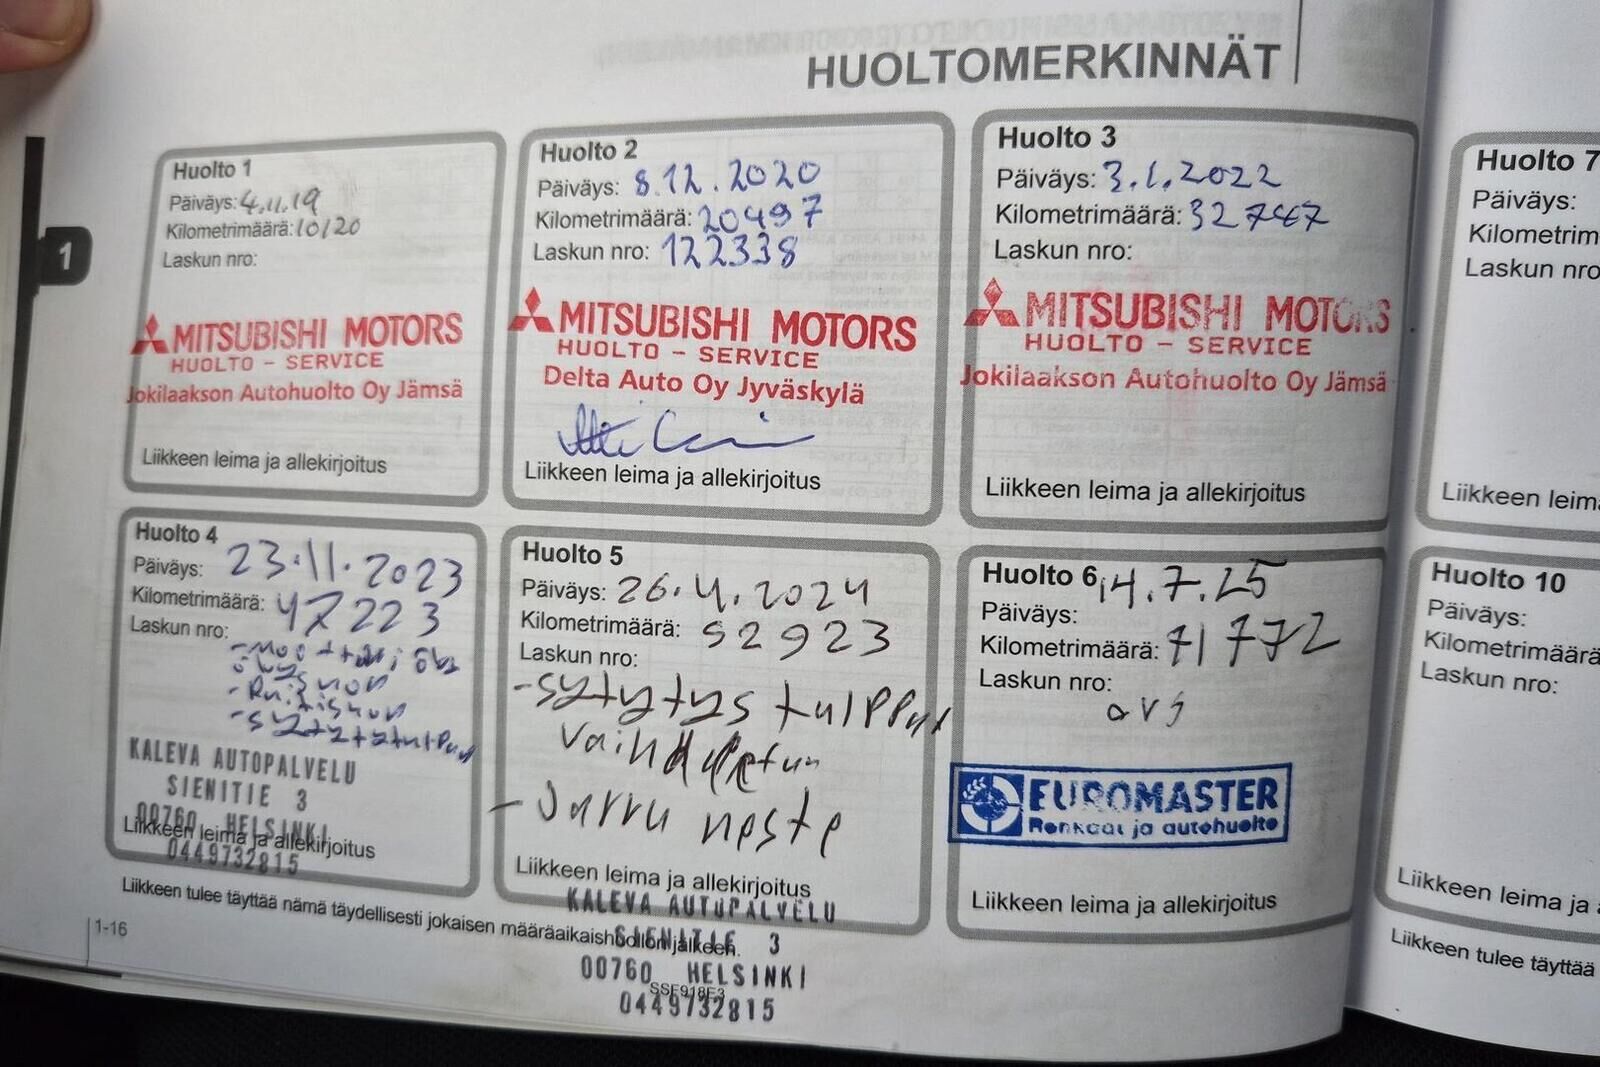 HUOLTOMERKINNÄT
1
Huolto 1
Päiväys: 4.11.19
Kilometrimäärä: 10120
Laskun nro:
MITSUBISHI MOTORS
HUOLTO - SERVICE
Jokilaakson Autohuolto Oy Jämsä
Liikkeen leima ja allekirjoitus
Huolto 2
Päiväys: 8.12.2020
Kilometrimäärä: 20497
Laskun nro: 122338
MITSUBISHI MOTORS
HUOLTO - SERVICE
Delta Auto Oy Jyväskylä
Liikkeen leima ja allekirjoitus
Huolto 3
Päiväys: 3.1.2022
Kilometrimäärä: 32747
Laskun nro:
MITSUBISHI MOTORS
HUOLTO - SERVICE
Jokilaakson Autohuolto Oy Jämsä
Liikkeen leima ja allekirjoitus
Huolto 4
Päiväys: 23.11.2023
Kilometrimäärä: 47223
Laskun nro:
KALEVA AUTOPALVELU
SIENITIE 3
00760 HELSINKI
Liikkeen leima ja allekirjoitus
0449732815
Huolto 5
Päiväys: 26.4.2024
Kilometrimäärä: 52923
Laskun nro:
-sytytys tulppat
- Jarru neste
Liikkeen leima ja allekirjoitus
KALEVA AUTOPALVELU
SIENITIE 3
00760 HELSINKI
0449732815
Huolto 6 14.7.25
Päiväys:
Kilometrimäärä: 71772
Laskun nro:
EUROMASTER
Renkaat ja autohuolto
Liikkeen leima ja allekirjoitus
Liikkeen tulee täyttää nämä täydellisesti jokaisen määräaikaishuollon jälkeen.
1-16
Huolto 7
Päiväys:
Kilometrim
Laskun nro
Liikkeen leima
Huolto 10
Päiväys:
Kilometrimäärä
Laskun nro:
Liikkeen leima ja a
Liikkeen tulee täyttää